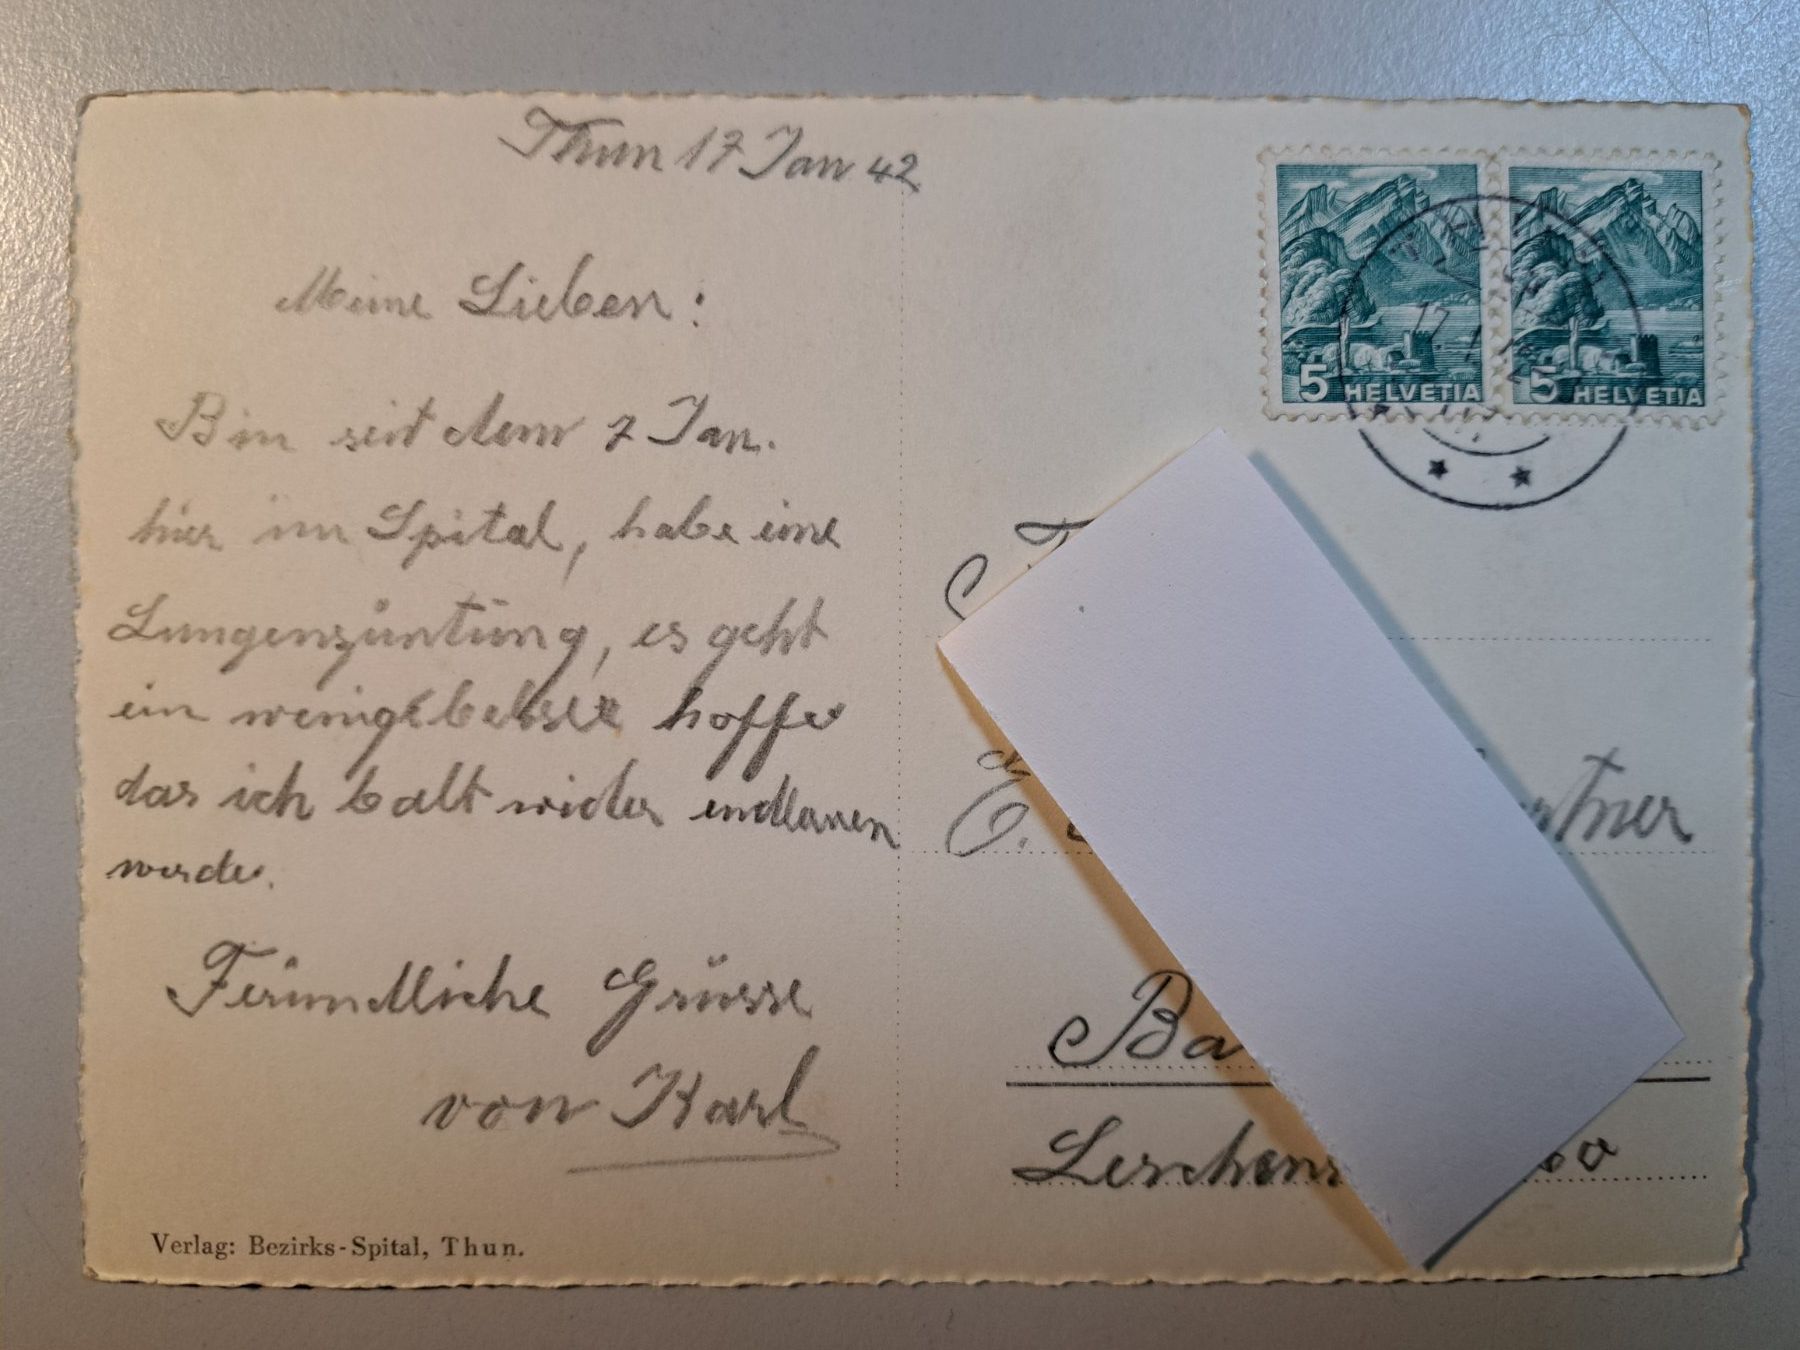 Thun 17 Jan 42
Meine Lieben:
Bin seit dem 7 Jan.
hier im Spital, habe eine
Lungenzüntung, es geht
ein wenig besser hoffe
das ich balt wider entlanen
werde.
Feründliche Grüsse
von Karl
Verlag: Bezirks-Spital, Thun.
5 HELVETIA
5 HELVETIA
17. 1. 42
E.
Ba
Lerchen